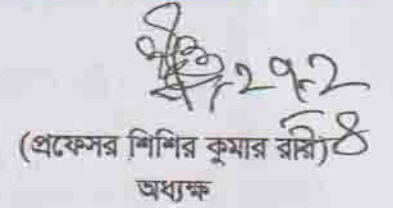 ২৭.২
(প্রফেসর শিশির কুমার রবি)
অধ্যক্ষ